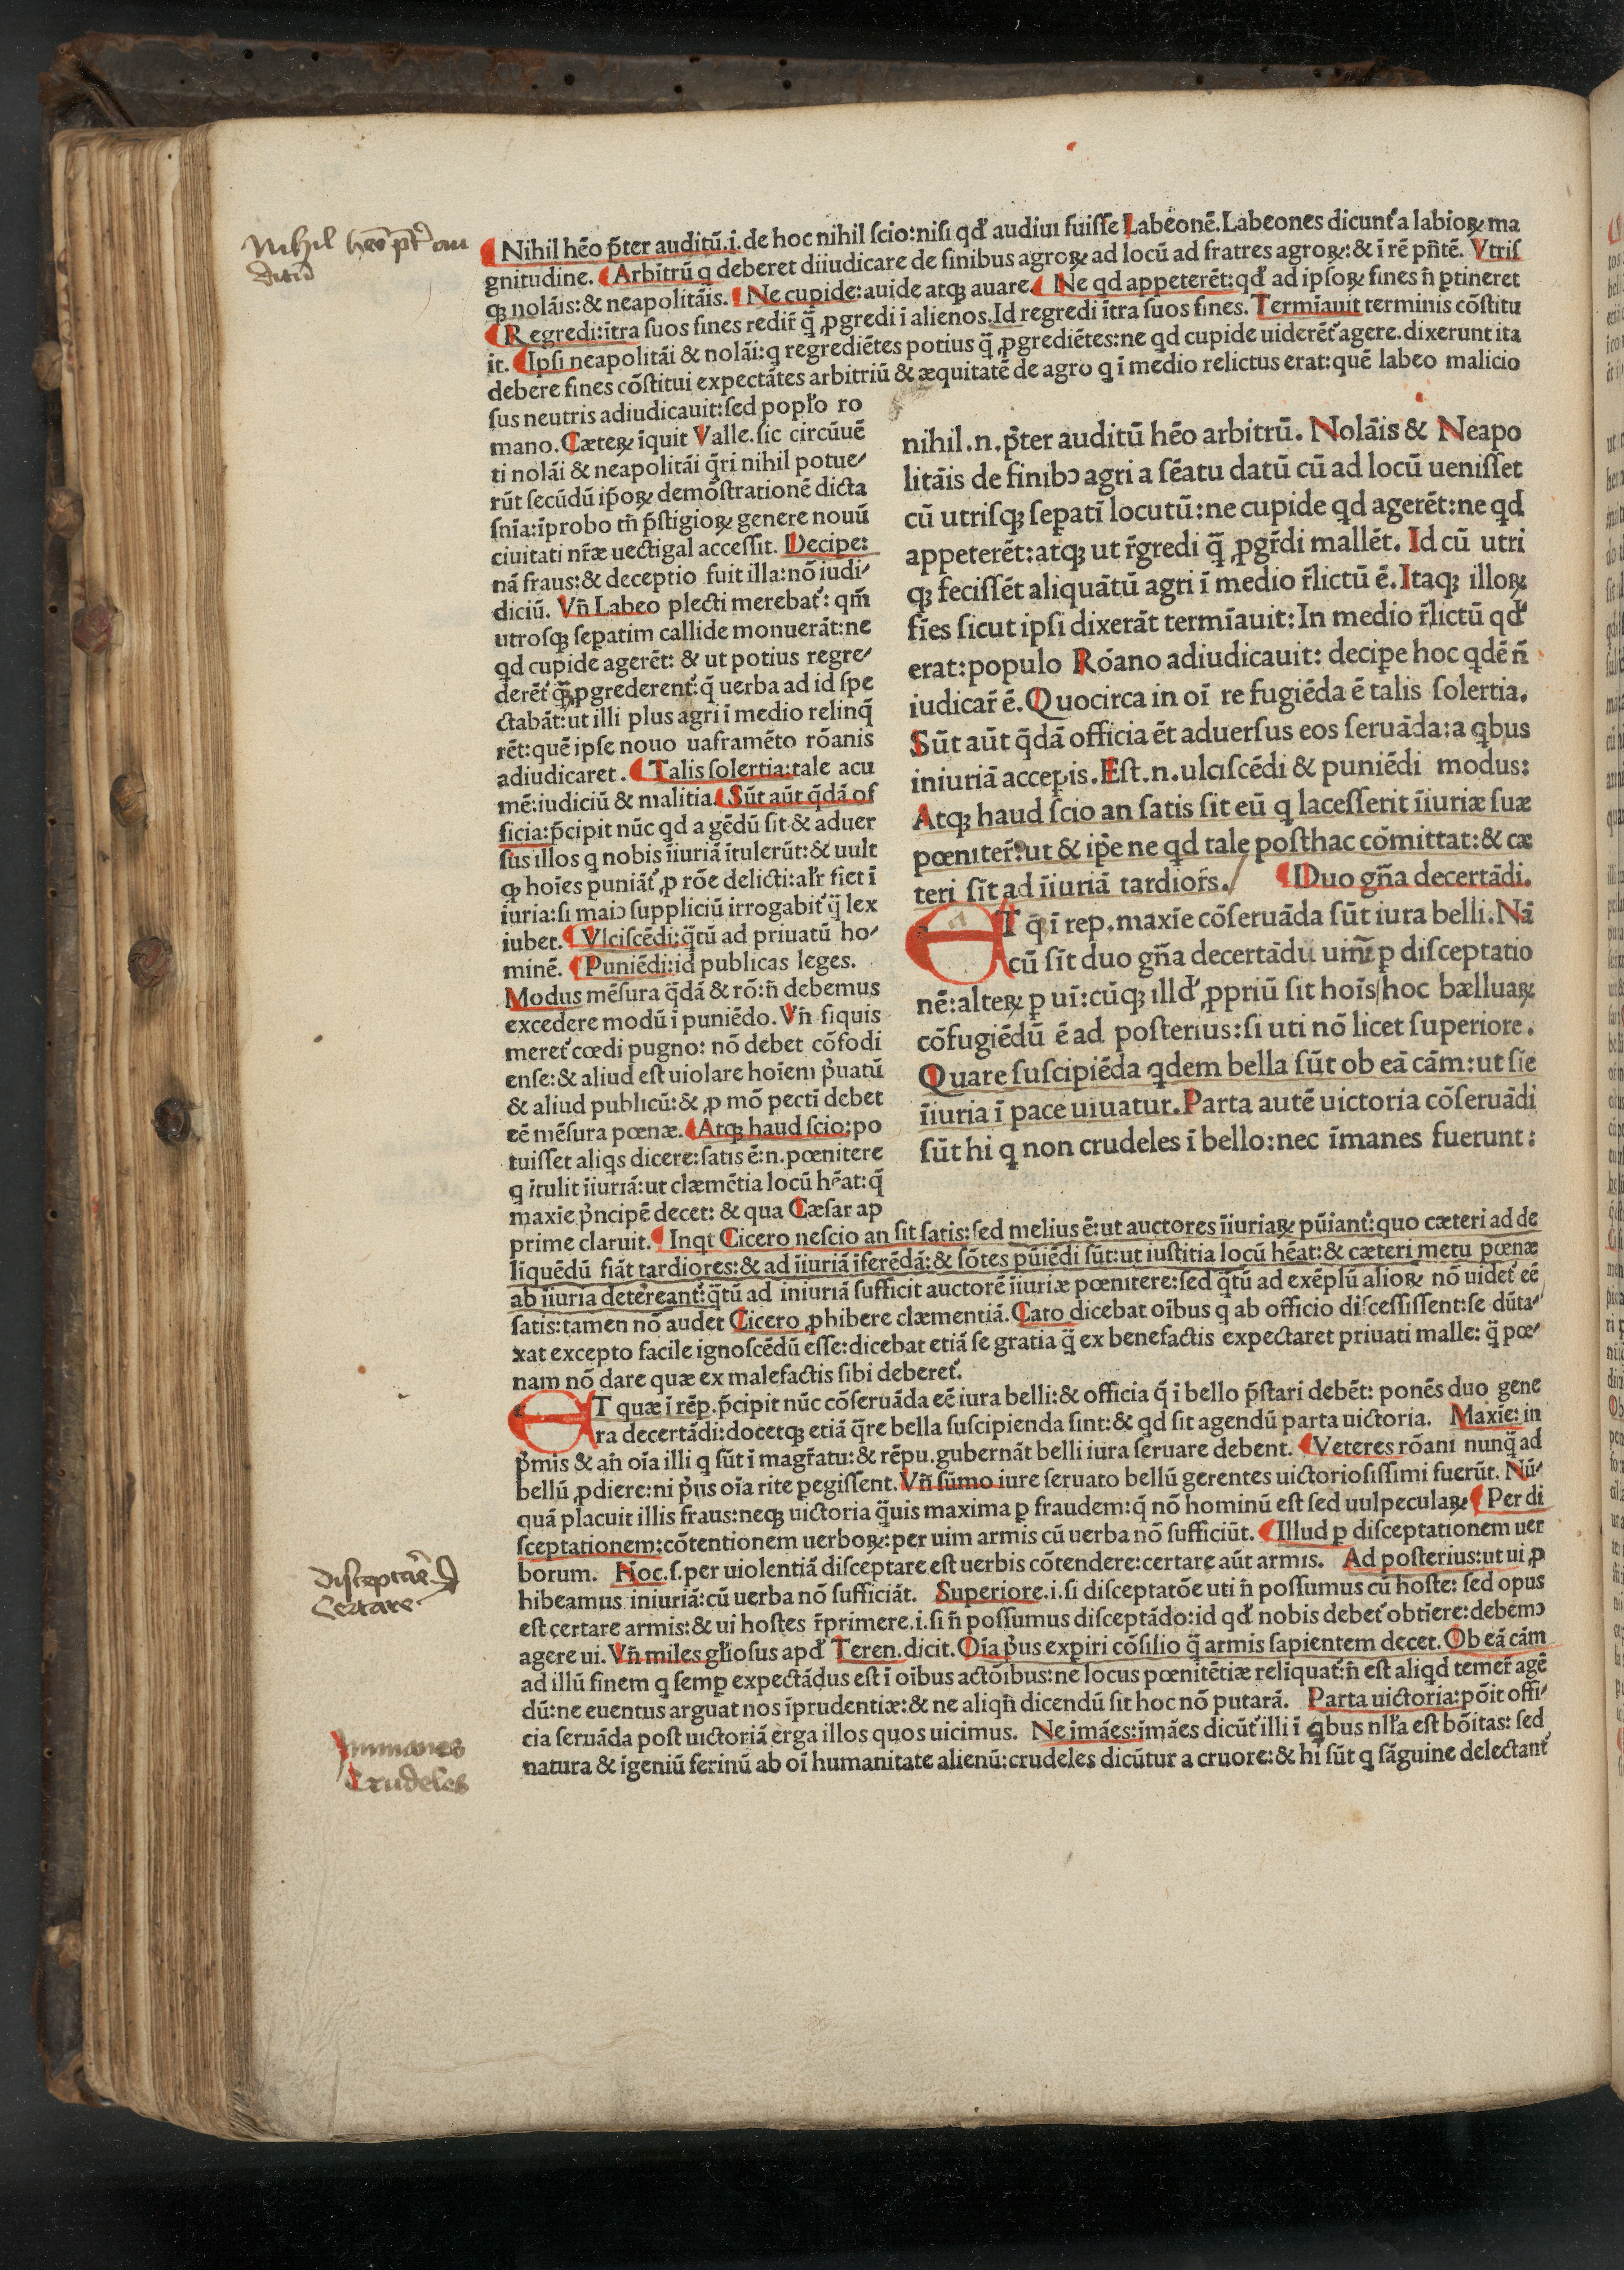 Nihil hẽo p̃ter auditũ.i.de hoc nihil ſcio:niſi qđ audiui fuiſſe Labeonẽ.Labeones dicunt᷑ a labioꝝ ma
gnitudine. Arbitrũ q deberet diiudicare de finibus agroꝝ ad locũ ad fratres agroꝝ:& ĩ rẽ pñtẽ. Vtriſ
qꝫ nolãis:& neapolitãis. Ne cupide:auide atqꝫ auare. Ne qd appeterẽt:qđ ad ipſoꝝ fines ñ ꝑtineret
Regredi:ĩtra ſuos fines redir̃ q̃ ꝓgredi ĩ alienos.Id regredi ĩtra ſuos fines. Termĩauit terminis cõſtitu
it. Ipſi neapolitãi & nolãi:q regrediẽtes potius q̃ ꝓgrediẽtes:ne qd cupide uiderẽt᷑ agere.dixerunt ita
debere fines cõſtitui expectãtes arbitriũ & æquitatẽ de agro q ĩ medio relictus erat:quẽ labeo malicio
ſus neutris adiudicauit:ſed popl̃o ro
mano. Cæteꝝ ĩquit Valle.ſic circũuẽ
ti nolãi & neapolitãi q̃ri nihil potue⸗
rũt ſecũdũ ip̃oꝝ demõſtrationẽ dicta
ſnĩa:ĩprobo tñ p̃ſtigioꝝ genere nouũ
ciuitati nr̃æ uectigal acceſſit. Decipe:
nã fraus:& deceptio fuit illa:nõ iudi⸗
diciũ. Vñ Labeo plecti merebat᷑: qm̃
utroſqꝫ ſepatim callide monuerãt:ne
qd cupide agerẽt: & ut potius regre⸗
derẽt᷑ q̃ꝫ ꝓgrederent᷑:q̃ uerba ad id ſpe
ctabãt:ut illi plus agri ĩ medio relinq̃
rẽt:quẽ ipſe nouo uaframẽto rõanis
adiudicaret. Talis ſolertia:tale acu
mẽ:iudiciũ & malitia. Sũt aũt q̃dã of
ficia:p̃cipit nũc qd a gẽdũ ſit & aduer
ſus illos q nobis ĩiuriã ĩtulerũt:& uult
ꝙ hoĩes puniãt᷑ ꝓ rõe delicti:al̃r fiet ĩ
iuria:ſi maiↄ ſuppliciũ irrogabit᷑ q̃ lex
iubet. Vlciſcẽdi:q̃tũ ad priuatũ ho⸗
minẽ. Puniẽdi:id publicas leges.
Modus mẽſura q̃dã & rõ:ñ debemus
excedere modũ ĩ puniẽdo. Vñ ſiquis
meret᷑ cœdi pugno: nõ debet cõfodi
enſe:& aliud eſt uiolare hoĩem p̃uatũ
& aliud publicũ:& ꝓ mõ pectĩ debet
eẽ mẽſura pœnæ. Atqꝫ haud ſcio:po
tuiſſet aliqs dicere:ſatis ẽ:n.pœnitere
q ĩtulit ĩiuriã:ut clæmẽtia locũ hẽat:q̃
maxie p̃ncipẽ decet: & qua Cæſar ap
prime claruit. Inqt Cicero neſcio an ſit ſatis:ſed melius ẽ:ut auctores ĩiuriaꝝ pũiant᷑:quo cæteri ad de
lĩquẽdũ fiãt tardiores:& ad ĩiuriã ĩferẽdã:& ſõtes pũiẽdi ſũt:ut iuſtitia locũ hẽat:& cæteri metu pœnæ
ab ĩiuria detereant᷑:q̃tũ ad iniuriã ſufficit auctorẽ ĩiuriæ pœnitere:ſed q̃tũ ad exẽplũ alioꝝ nõ uidet᷑ eẽ
ſatis:tamen nõ audet Cicero ꝓhibere clæmentiã. Cato dicebat oĩbus q ab officio diſceſſiſſent:ſe dũta⸗
xat excepto facile ignoſcẽdũ eſſe:dicebat etiã ſe gratia q̃ ex benefactis expectaret priuati malle: q̃ pœ⸗
nam nõ dare quæ ex malefactis ſibi deberet᷑.
nihil.n.p̃ter auditũ hẽo arbitrũ. Nolãis & Neapo
litãis de finibↄ agri a ſẽatu datũ cũ ad locũ ueniſſet
cũ utriſqꝫ ſeꝑatĩ locutũ:ne cupide qd agerẽt:ne qd
appeterẽt:atqꝫ ut r̃gredi q̃ ꝓgr̃di mallẽt. Id cũ utri
qꝫ feciſſẽt aliquãtũ agri ĩ medio r̃lictũ ẽ. Itaqꝫ illoꝝ
fĩes ſicut ipſi dixerãt termĩauit:In medio r̃lictũ qđ
erat:populo Róano adiudicauit: decipe hoc qdẽ ñ
iudicar̃ ẽ. Quocirca in oĩ re fugiẽda ẽ talis ſolertia.
Sũt aũt q̃dã officia ẽt aduerſus eos ſeruãda:a qbus
iniuriã acceꝑis. Eſt.n.ulciſcẽdi & puniẽdi modus:
Atqꝫ haud ſcio an ſatis ſit eũ q laceſſerit ĩiuriæ ſuæ
pœniter̃:ut & ip̃e ne qd tale poſthac cõmittat:& cæ
teri ſĩt ad ĩiuriã tardior̃s. Duo gñ̃a decertãdi.
AT q̃ ĩ rep.maxĩe cõſeruãda ſũt iura belli. Nã
cũ ſĩt duo gñ̃a decertãdi: unũ ꝑ diſceptatio
nẽ:alteꝝ ꝑ uĩ:cũqꝫ illđ ꝓpriũ ſit hoĩs hoc bælluaꝝ
cõfugiẽdũ ẽ ad poſterius:ſi uti nõ licet ſuperiore.
Quare ſuſcipiẽda qdem bella ſũt ob eã cãm:ut ſĩe
ĩiuria ĩ pace uiuatur. Parta autẽ uictoria cõſeruãdi
ſũt hi q non crudeles ĩ bello:nec ĩmanes fuerunt:
ET quæ ĩ rẽp.p̃cipit nũc cõſeruãda eẽ iura belli:& officia q̃ ĩ bello p̃ſtari debẽt: ponẽs duo gene
ra decertãdi:docetqꝫ etiã q̃re bella ſuſcipienda ſint:& qd ſit agendũ parta uictoria. Maxĩe: in
p̃mis & añ oĩa illi q ſũt ĩ magr̃atu:& rẽpu.gubernãt belli iura ſeruare debent. Veteres rõani nunq̃ ad
bellũ ꝓdiere:ni p̃us oĩa rite ꝑegiſſent. Vñ ſũmo iure ſeruato bellũ gerentes uictorioſiſſimi fuerũt. Nũ⸗
quã placuit illis fraus:neqꝫ uictoria q̃uis maxima ꝑ fraudem:q̃ nõ hominũ eſt ſed uulpeculaꝝ. Per di
ſceptationem:cõtentionem uerboꝝ:per uim armis cũ uerba nõ ſufficiũt. Illud ꝑ diſceptationem uer
borum. Hoc.ſ.per uiolentiã diſceptare eſt uerbis cõtendere:certare aũt armis. Ad poſterius:ut ui ꝓ
hibeamus iniuriã:cũ uerba nõ ſufficiãt. Superiore.i.ſi diſceptatõe uti ñ poſſumus cũ hoſte: ſed opus
eſt certare armis:& ui hoſtes r̃primere.i.ſi ñ poſſumus diſceptãdo:id qđ nobis debet᷑ obtĩere:debemↄ
agere ui. Vñ miles gl̃ioſus apđ Teren.dicit. Oĩa p̃us expiri cõſilio q̃ armis ſapientem decet. Ob eã cãm
ad illũ finem q ſemꝑ expectãdus eſt ĩ oĩbus actõibus:ne locus pœnitẽtiæ relĩquat᷑:ñ eſt aliqd temer̃ agẽ
dũ:ne euentus arguat nos ĩprudentiæ:& ne aliqñ dicendũ ſit hoc nõ putarã. Parta uictoria:põit offi⸗
cia ſeruãda poſt uictoriã erga illos quos uicimus. Ne ĩmães:ĩmães dicũt᷑ illi ĩ qbus nll̃a eſt bõitas: ſed
natura & ĩgeniũ ferinũ ab oĩ humanitate alienũ:crudeles dicũtur a cruore:& hi ſũt q ſãguine delectant᷑
Nihil heo p̃t᷑ au
ditũ
Diſceptar̃e
Certare
Immanes
Crudeles